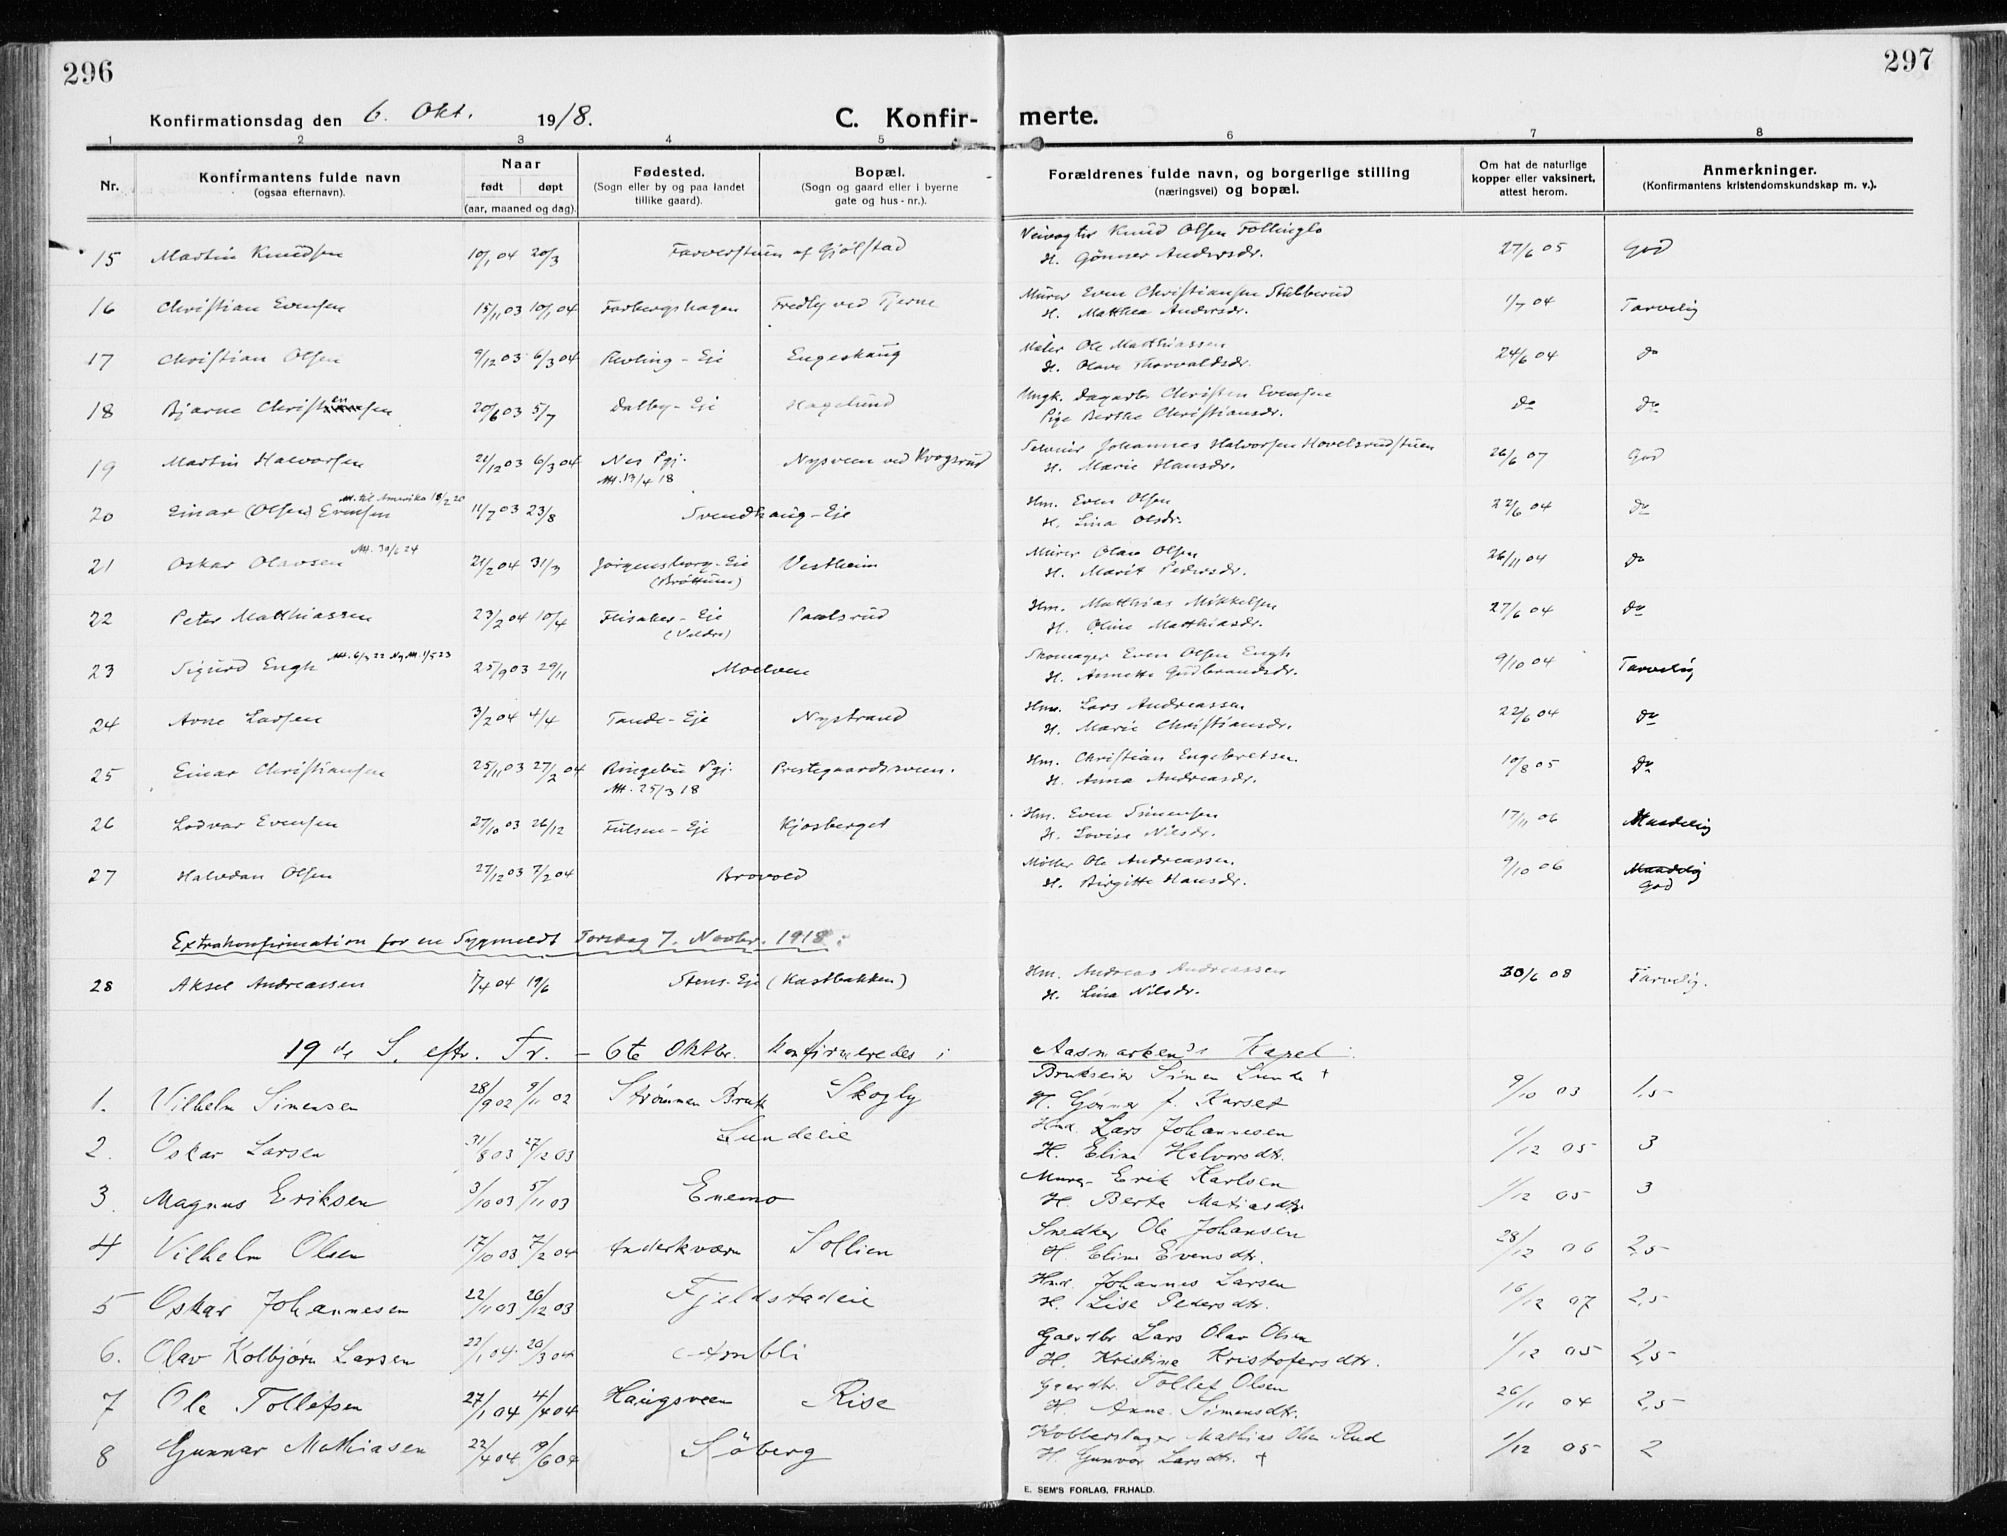 296
297
Konfirmationsdag den 6. Okt. 1918.
C. Konfir- merte.
1 2 3 4 5 6 7 8
Nr.
Konfirmantens fulde navn
(ogsaa efternavn).
Naar
født døpt
(aar, maaned og dag).
Fødested.
(Sogn eller by og paa landet
tillike gaard).
Bopæl.
(Sogn og gaard eller i byerne
gate og hus-nr.).
Forældrenes fulde navn, og borgerlige stilling
(næringsvei) og bopæl.
Om hat de naturlige
kopper eller vaksinert,
attest herom.
Anmerkninger.
(Konfirmantens kristendomskundskap m. v.).
15 Martin Knudsen 10/1 04 20/3 Farverstuen af Gjølstad Veivogter Knud Olsen Follinglo 27/6 05 God
H. Gønner Andersdr.
16 Christian Evensen 15/11 03 10/1 04 Farbergshagen Fredly ved Tjerne Murer Even Christiansen Stubberud 1/7 04 Tarvelig
H. Matthea Andersdr.
17 Christian Olsen 9/12 03 6/3 04 Revling-Eje Engeshaug Maler Ole Matthiassen 24/6 04 do
H. Olave Thorvaldsdr.
18 Bjarne Christensen 20/6 03 5/7 Dalby-Eje Hagelund Ungk. Dagarb. Christen Evensen do do
Pige Berthe Christiansdr.
19 Martin Halvorsen 21/12 03 6/3 04 Nes Pgj. Nysveen ved Krogsrud Selveier Johannes Halvorsen Hovelsrudstuen 26/6 07 God
Att. 19/4 18
H. Marie Hansdr.
Att. til Amerika 18/2 20
20 Einar (Olsen) Evensen 11/7 03 23/8 Svendhaug-Eje Hm. Even Olsen 22/6 04 do
H. Lina Olsdr.
Att. 30/6 24
21 Oskar Olavsen 21/2 04 31/3 Jørgensborg-Eie Vestheim Murer Olav Olsen 26/11 04 do
(Brøttum)
H. Marit Pedersdr.
22 Peter Matthiassen 23/2 04 10/4 Flisaker-Eie Paalsrud Hm. Matthias Mikkelsen 27/6 04 do
(Veldre)
H. Oline Matthiasdr.
Att. 6/3 22 Ny Att. 1/5 23
23 Sigurd Engh 25/9 03 29/11 Moelven Skomager Even Olsen Engh 9/10 04 Tarvelig
H. Annette Gudbrandsdr.
24 Arne Larsen 3/2 04 4/4 Tande-Eje Nystrand Hm. Lars Andreassen 22/6 04 do
H. Marie Christiansdr.
25 Einar Christiansen 25/11 03 27/2 04 Ringebu Pgj. Prestegaardsveen. Hm. Christian Engebretsen 10/8 05 do
Att. 25/3 18
H. Anna Andreasdr.
26 Lodvar Evensen 27/10 03 26/12 Fulsen-Eje Kjosberget Hm. Even Simensen 17/11 06 Maadelig
H. Lovise Nilsdr.
27 Halvdan Olsen 27/12 03 7/2 04 Brovold Møller Ole Andreassen. 9/10 06 Maadelig
H. Birgitte Hansdr. God
Extrakonfirmation for en Sygmeldt Torsdag 7. Novbr. 1918:
28 Aksel Andreassen 7/4 04 19/6 Stens-Eje (Kastbakken) Hm. Andreas Andreassen 30/6 08 Tarvelig.
H. Lina Nilsdr.
19de S. eftr. Tr. - 6te Oktbr. Konfirmeredes i Aasmarken's Kapel:
1. Vilhelm Simensen 28/9 02 9/11 02 Strømmen Bruk Skogly Brukseier Simen Lunde + 9/10 03 1,5
H. Gønner f. Karset
2. Oskar Larsen 31/8 03 27/12 03 Lundeeie Hmd. Lars Johannesen 1/12 05 3
H. Eline Halvorsdtr.
3. Magnus Eriksen 3/10 03 5/11 03 Enemo Murer Erik Karlsen 1/12 05 3
H. Berte Matiasdtr.
4 Vilhelm Olsen 17/10 03 7/2 04 Anderkværn Sollien Snedker Ole Johansen 28/12 06 2,5
H. Eline Evensdtr.
5 Oskar Johannesen 22/11 03 26/12 03 Fjeldstadeie Hmd. Johannes Larsen 16/12 07 2,5
H. Lise Pedersdtr.
6. Olav Kolbjørn Larsen 22/1 04 20/3 04 Arnbli Gaardbr Lars Olav Olsen 1/12 05 2,5
H. Kristine Kristofersdtr.
7 Ole Tollefsen 27/1 04 4/4 04 Haugsveen Rise Gaardbr. Tollef Olsen 26/11 04 2,5
H. Anne Simensdtr.
8 Gunnar Mathiasen 22/4 04 19/6 04 Søberg Kobberslager Mathias Olsen Rud 1/12 05 2
H. Gunvor Larsdtr. +
E. SEM'S FORLAG, FR.HALD.